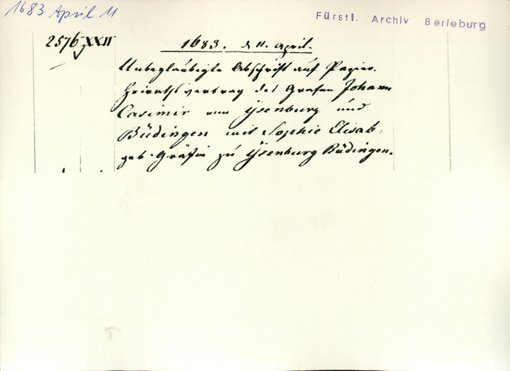 1683 April 11
Fürstl. Archiv Berleburg
2576 XXII
1683. d 11. April.
Unbeglaubigte Abschrift auf Papier.
Heirathsvertrag des Grafen Johann
Casimir von Ysenburg und
Büdingen mit Sophie Elisab,
geb. Gräfin zu Ysenburg Büdingen.